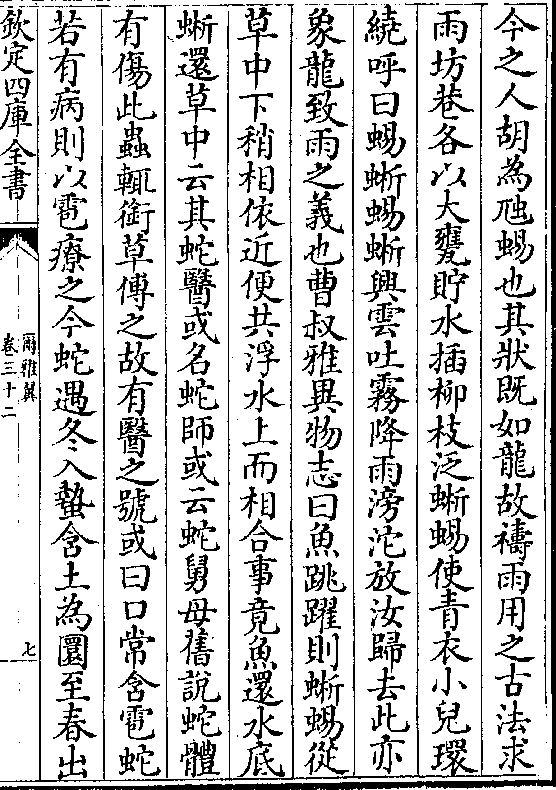 今之人胡為虺蜴也其狀既如龍故禱雨用之古法求
雨坊巷各以大甕貯水插柳枝泛蜥蜴使青衣小兒環
繞呼曰蜴蜥蜴蜥興雲吐霧降雨滂沱放汝歸去此亦
象龍致雨之義也曹叔雅異物志曰魚跳躍則蜥蜴從
草中下稍相依近便共浮水上而相合事竟魚還水底
蜥還草中云其蛇醫或名蛇師或云蛇舅母舊說蛇體
有傷此蟲輒銜草傅之故有醫之號或曰口常含雹蛇
若有病則以雹療之今蛇遇冬入蟄含土為圜至春出
欽定四庫全書
爾雅翼
卷三十二
七